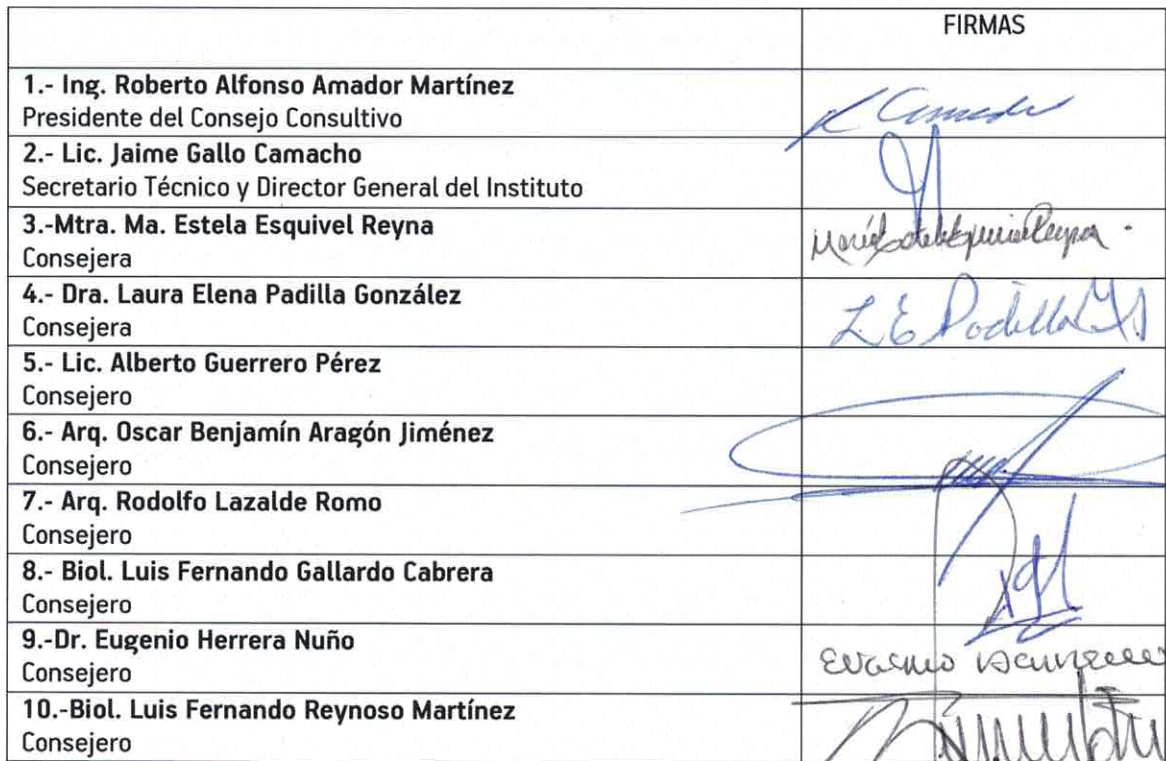 FIRMAS
1.- Ing. Roberto Alfonso Amador Martínez
Presidente del Consejo Consultivo
2.- Lic. Jaime Gallo Camacho
Secretario Técnico y Director General del Instituto
3.-Mtra. Ma. Estela Esquivel Reyna
Consejera
María Estela Esquivel Reyna
4.- Dra. Laura Elena Padilla González
Consejera
L E Padilla G
5.- Lic. Alberto Guerrero Pérez
Consejero
6.- Arq. Oscar Benjamín Aragón Jiménez
Consejero
7.- Arq. Rodolfo Lazalde Romo
Consejero
8.- Biol. Luis Fernando Gallardo Cabrera
Consejero
9.-Dr. Eugenio Herrera Nuño
Consejero
Eugenio
10.-Biol. Luis Fernando Reynoso Martínez
Consejero